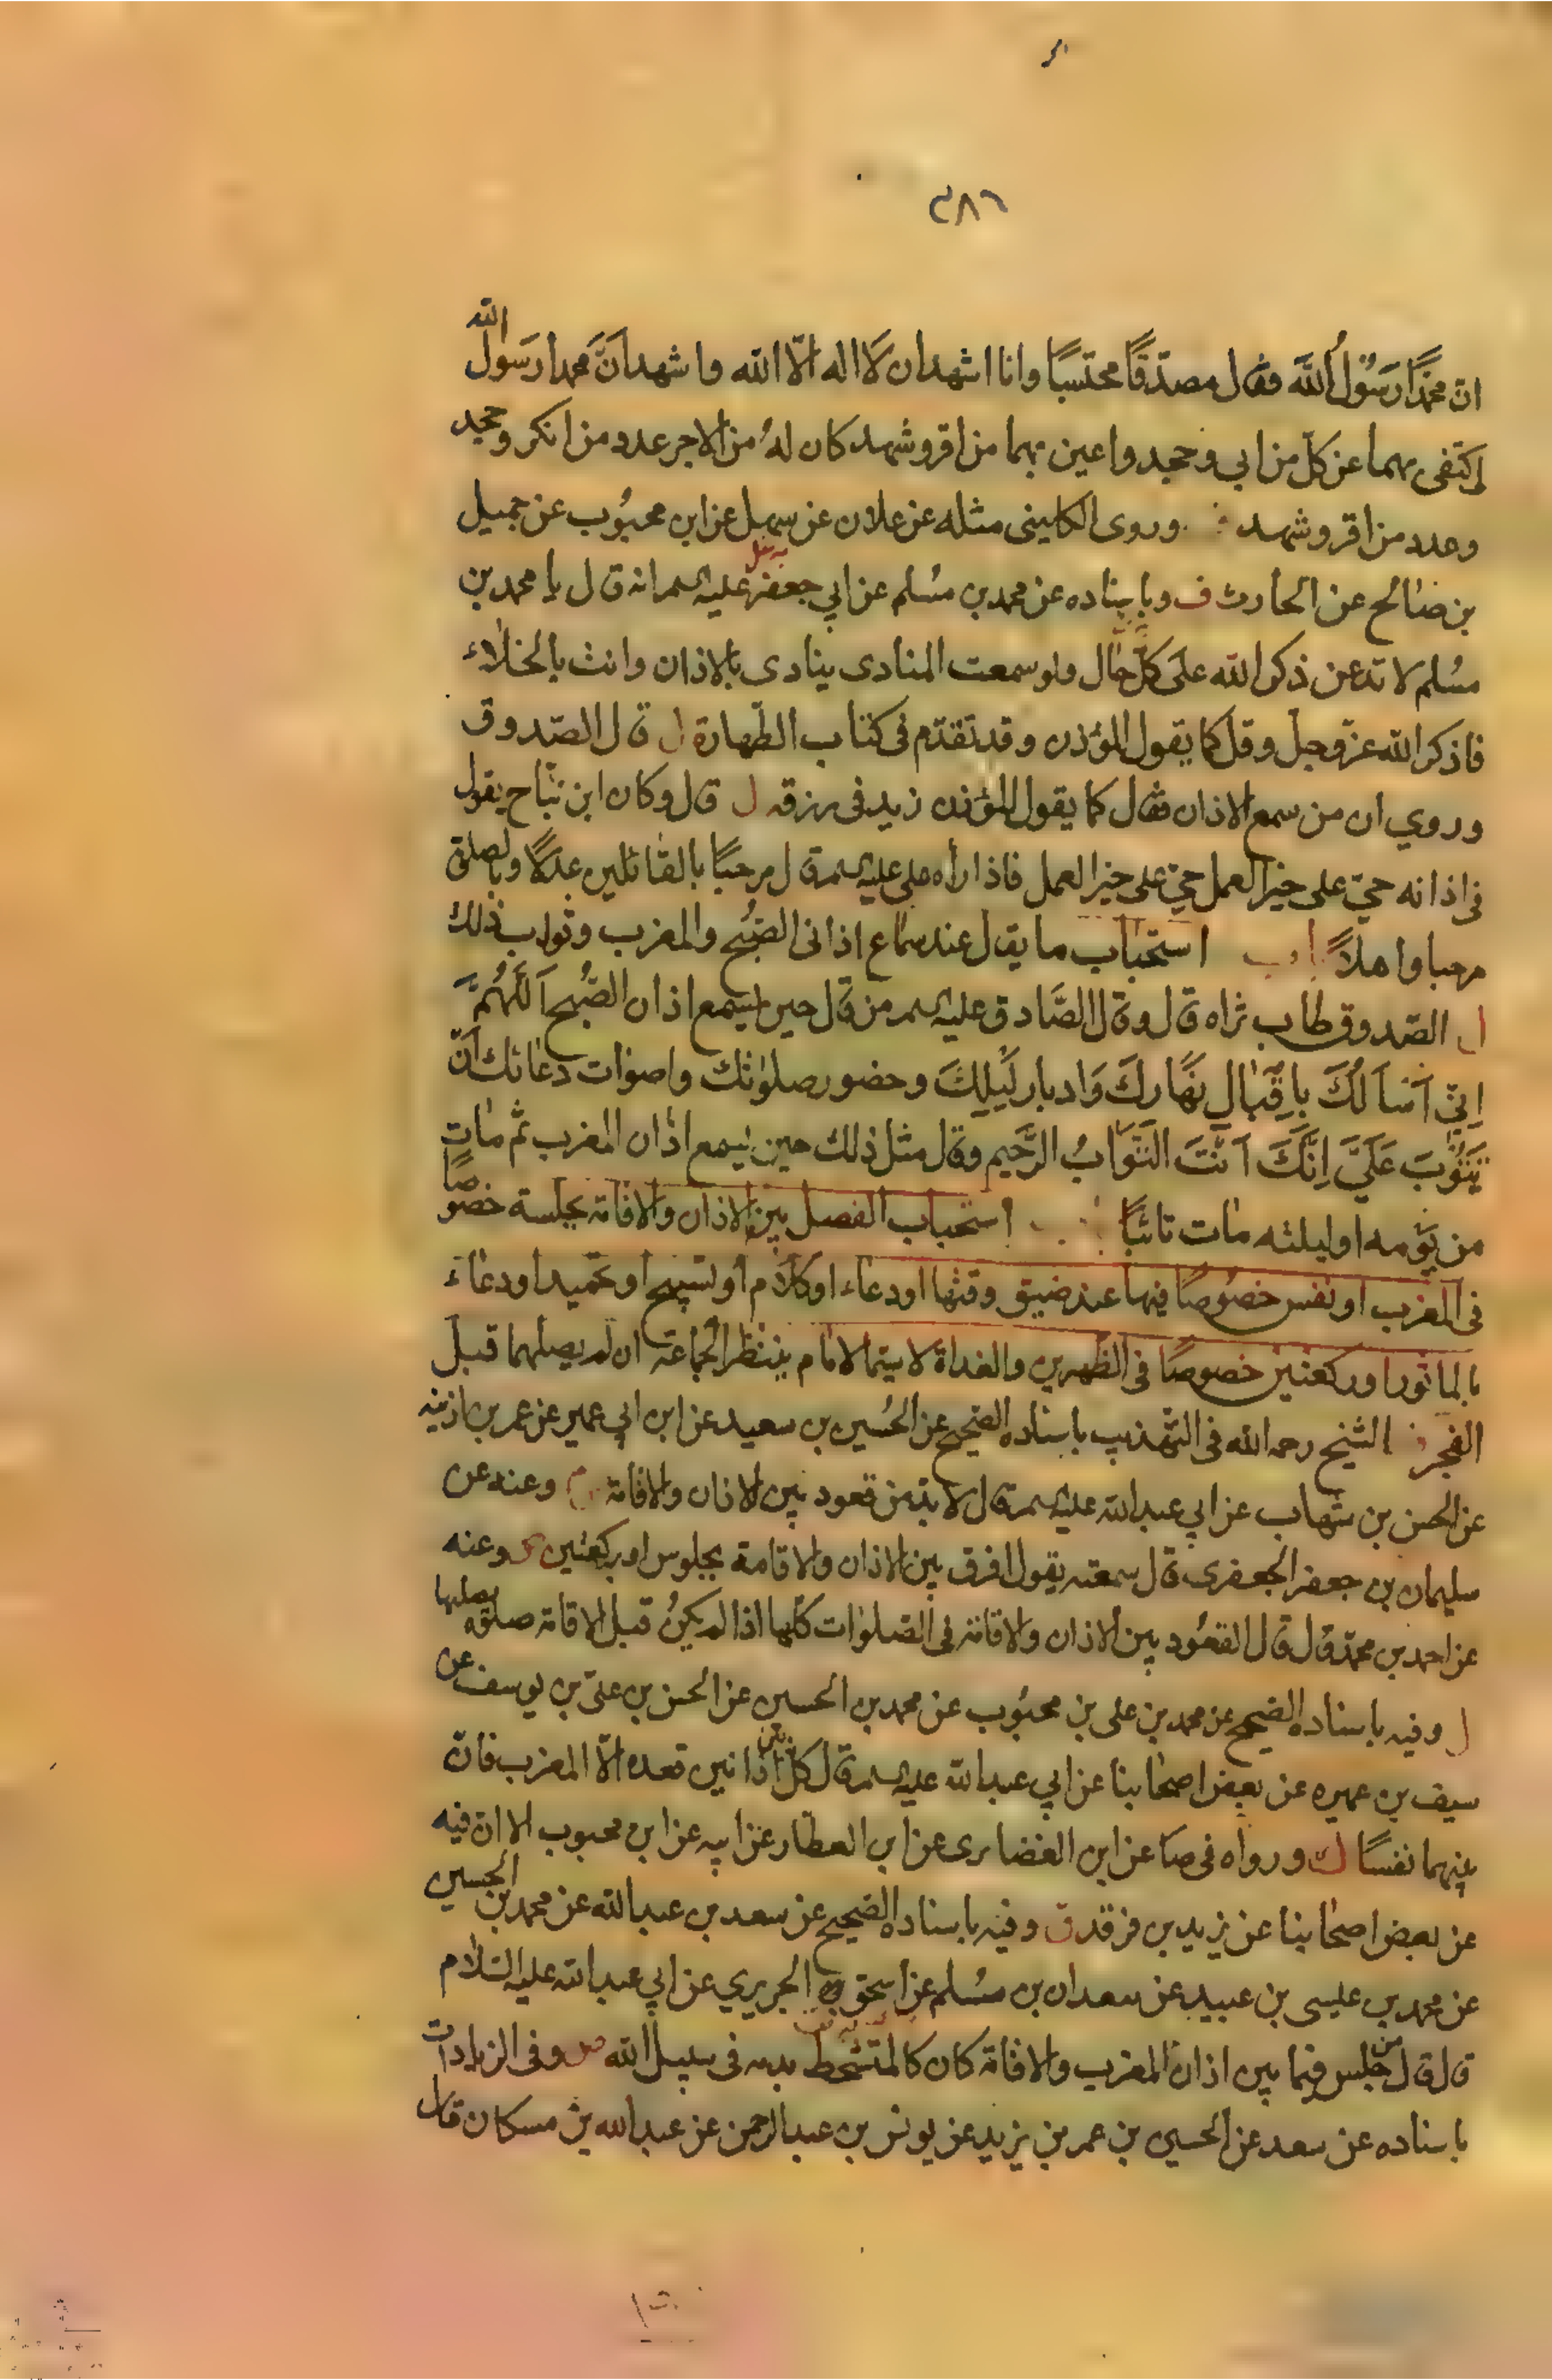 ٣٨٦
ان محمدًا رَسُوْلُ اللهَ فقال مصدّقًا محتسبًا وانا اشهدان لَا اله الّا الله واشهدانَّ محمدا رسَول الله
اكتفى بهما عن كلّ من ابى وجحد واعين بهما من اقر وشهد كان لهُ من الاجر عدد من انكر وجحد
وعدد من اقر وشهد وروى الكلينى مثله عن علان عن سهل عن ابن محبُوب عن جميل
بن صالح عن الحارث ف وباسناده عن محمد بن مسُلم عن ابي جعفر عليه السلم انه قال يا محمد بن
مسُلم لا تدعن ذكر الله علَى كلّ حال ولو سمعت المنادى ينادى بالاذان وانت بالخلاء
فاذكر الله عزّ وجلّ وقل كما يقول المؤذن وقد تقدّم فى كتاب الطهارة ل قال الصّدوق
وروي ان من سمع الاذان فقال كما يقول المؤذن زيد فى رزقه ل قال وكان ابن نبّاح يقول
فى اذانه حيّ على خير العمل حيّ على خير العمل فاذا رأه على عليه السلم قال مرحبًا بالقائلين عدلًا وبالصلوة
مرحبا واهلًا استحباب ما يقال عند سماع اذانى الصبُح والمغرب وثواب ذلك
ل الصّدوق طاب ثراه قال وقال الصَّادق عليه السلم من قال حين يسمع اذان الصُّبح اَللّهُمَّ
اِنِّيَ اَسْاَلُكَ بِاِقْبَالِ نَهَارِكَ وَادبار لَيْلِكَ وحضور صلواتك واصوات دعائك اَنْ
تَتُوْبَ عَلَيَّ اِنَّكَ اَنْتَ التَّوَابُ الرَّحيم وقال مثل ذلك حين يسمع اذان المغرب ثم مات
من يَومه او ليلته مات تائبًا استحباب الفصل بين الاذان والاقامة بجلسة خصوصًا
فى المغرب او نفس خصُوصًا فيها عند ضيق وقتها او دعاء او كلام او تسبيح او تحميد او دعاء
بالماثور او ركعتين خصوصًا فى الظهرين والغداة لا سيّما لامام ينتظر الجماعة ان لم يصلهما قبل
الفجر الشيخ رحمه الله فى التهذيب باسناده الصّحيح عن الحُسين بن سعيد عن ابن ابي عمير عن عمر بن اذينه
عن الحسن بن شهاب عن ابي عبد الله عليه السلم قال لا بد من قعود بين الاذان والاقامة وعنه عن
سليمان بن جعفر الجعفرى قال سمعته يقول افرق بين الاذان والاقامة بجلوس او بركعتين وعنه
عن احمد بن محمّد قال قال القعُود بين الاذان والاقامة فى الصّلوات كلّها اذا لم يكنُ قبل الاقامة صلوة يصليها
ل وفيه باسناده الصّحيح عن محمد بن على بن محبُوب عن محمد بن الحسين عن الحسن بن على بن يوسف عن
سيف بن عميره عن بعض اصحابنا عن ابي عبد الله عليه السلم قال بين كلّ اذانين قعده الّا المغرب فانّ
بينهما نفسًا ك ورواه فى صا عن ابن الغضايرى عن ابن العطار عن ابيه عن ابن محبوب الا ان فيه
عن بعض اصحابنا عن يزيد بن فرقد ق وفيه باسناده الصّحيح عن سعد بن عبد الله عن محمد بن الحسين
عن محمد بن عليسى بن عبيد عن سعدان بن مسُلم عن اسحق الجريري عن ابي عبد الله عليه السّلام
قال قال من جلس فيما بين اذان المغرب والاقامة كان كالمتشحّط بدمه فى سبيل الله وفى الزيادات
باسناده عن سعد عن الحسين بن عمر بن يزيد عن يونس بن عبد الرحمن عن عبد الله بن مسكان قال